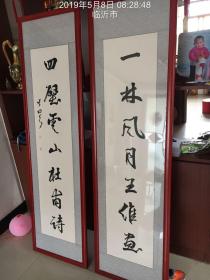 2019年5月8日 08:28:48
临沂市
一林风月王维画
四壁云山杜甫诗